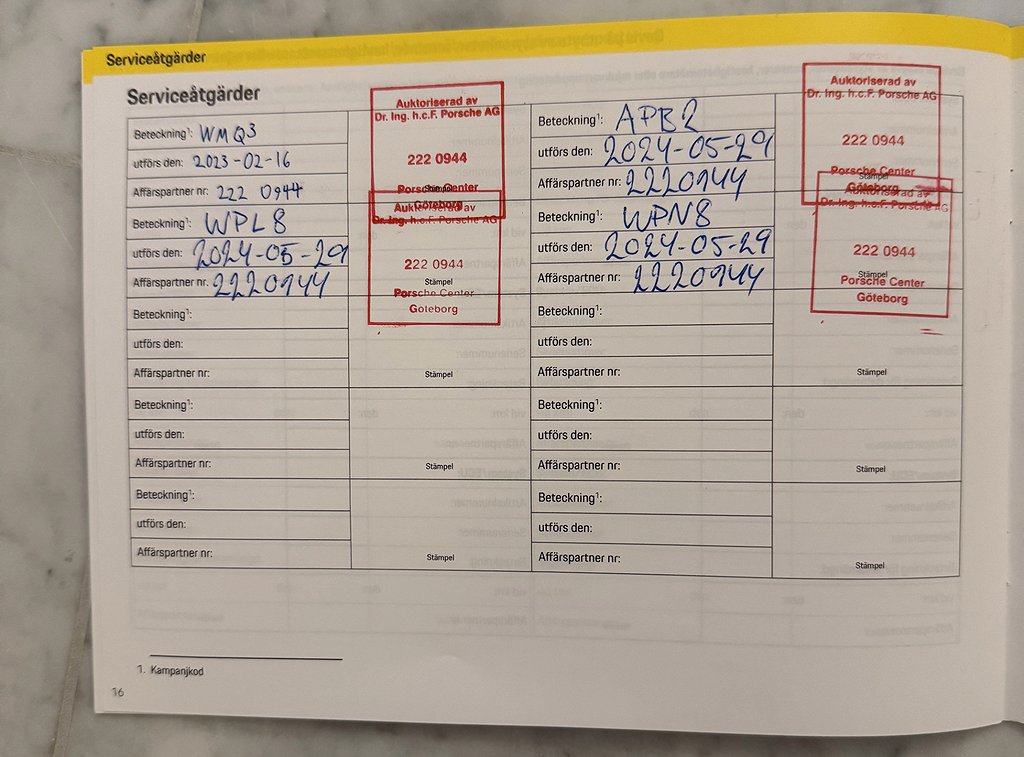 Serviceåtgärder
Serviceåtgärder
Beteckning¹: WMQ3
utförs den: 2023-02-16
Affärspartner nr: 222 0944
Auktoriserad av
Dr. Ing. h.c.F. Porsche AG
222 0944
Porsche Center
Stämpel
Göteborg
Beteckning¹: WPL8
utförs den: 2024-05-29
Affärspartner nr. 2220944
Auktoriserad av
Dr. Ing. h.c.F. Porsche AG
222 0944
Stämpel
Porsche Center
Göteborg
Beteckning¹:
utförs den:
Affärspartner nr:
Stämpel
Beteckning¹:
utförs den:
Affärspartner nr:
Stämpel
Beteckning¹:
utförs den:
Affärspartner nr:
Stämpel
Beteckning¹: APB2
utförs den: 2024-05-29
Affärspartner nr: 2220944
Auktoriserad av
Dr. Ing. h.c.F. Porsche AG
222 0944
Porsche Center
Stämpel
Göteborg
Beteckning¹: WPN8
utförs den: 2024-05-29
Affärspartner nr: 2220944
Auktoriserad av
Dr. Ing. h.c.F. Porsche AG
222 0944
Stämpel
Porsche Center
Göteborg
Beteckning¹:
utförs den:
Affärspartner nr:
Stämpel
Beteckning¹:
utförs den:
Affärspartner nr:
Stämpel
Beteckning¹:
utförs den:
Affärspartner nr:
Stämpel
1. Kampanjkod
16